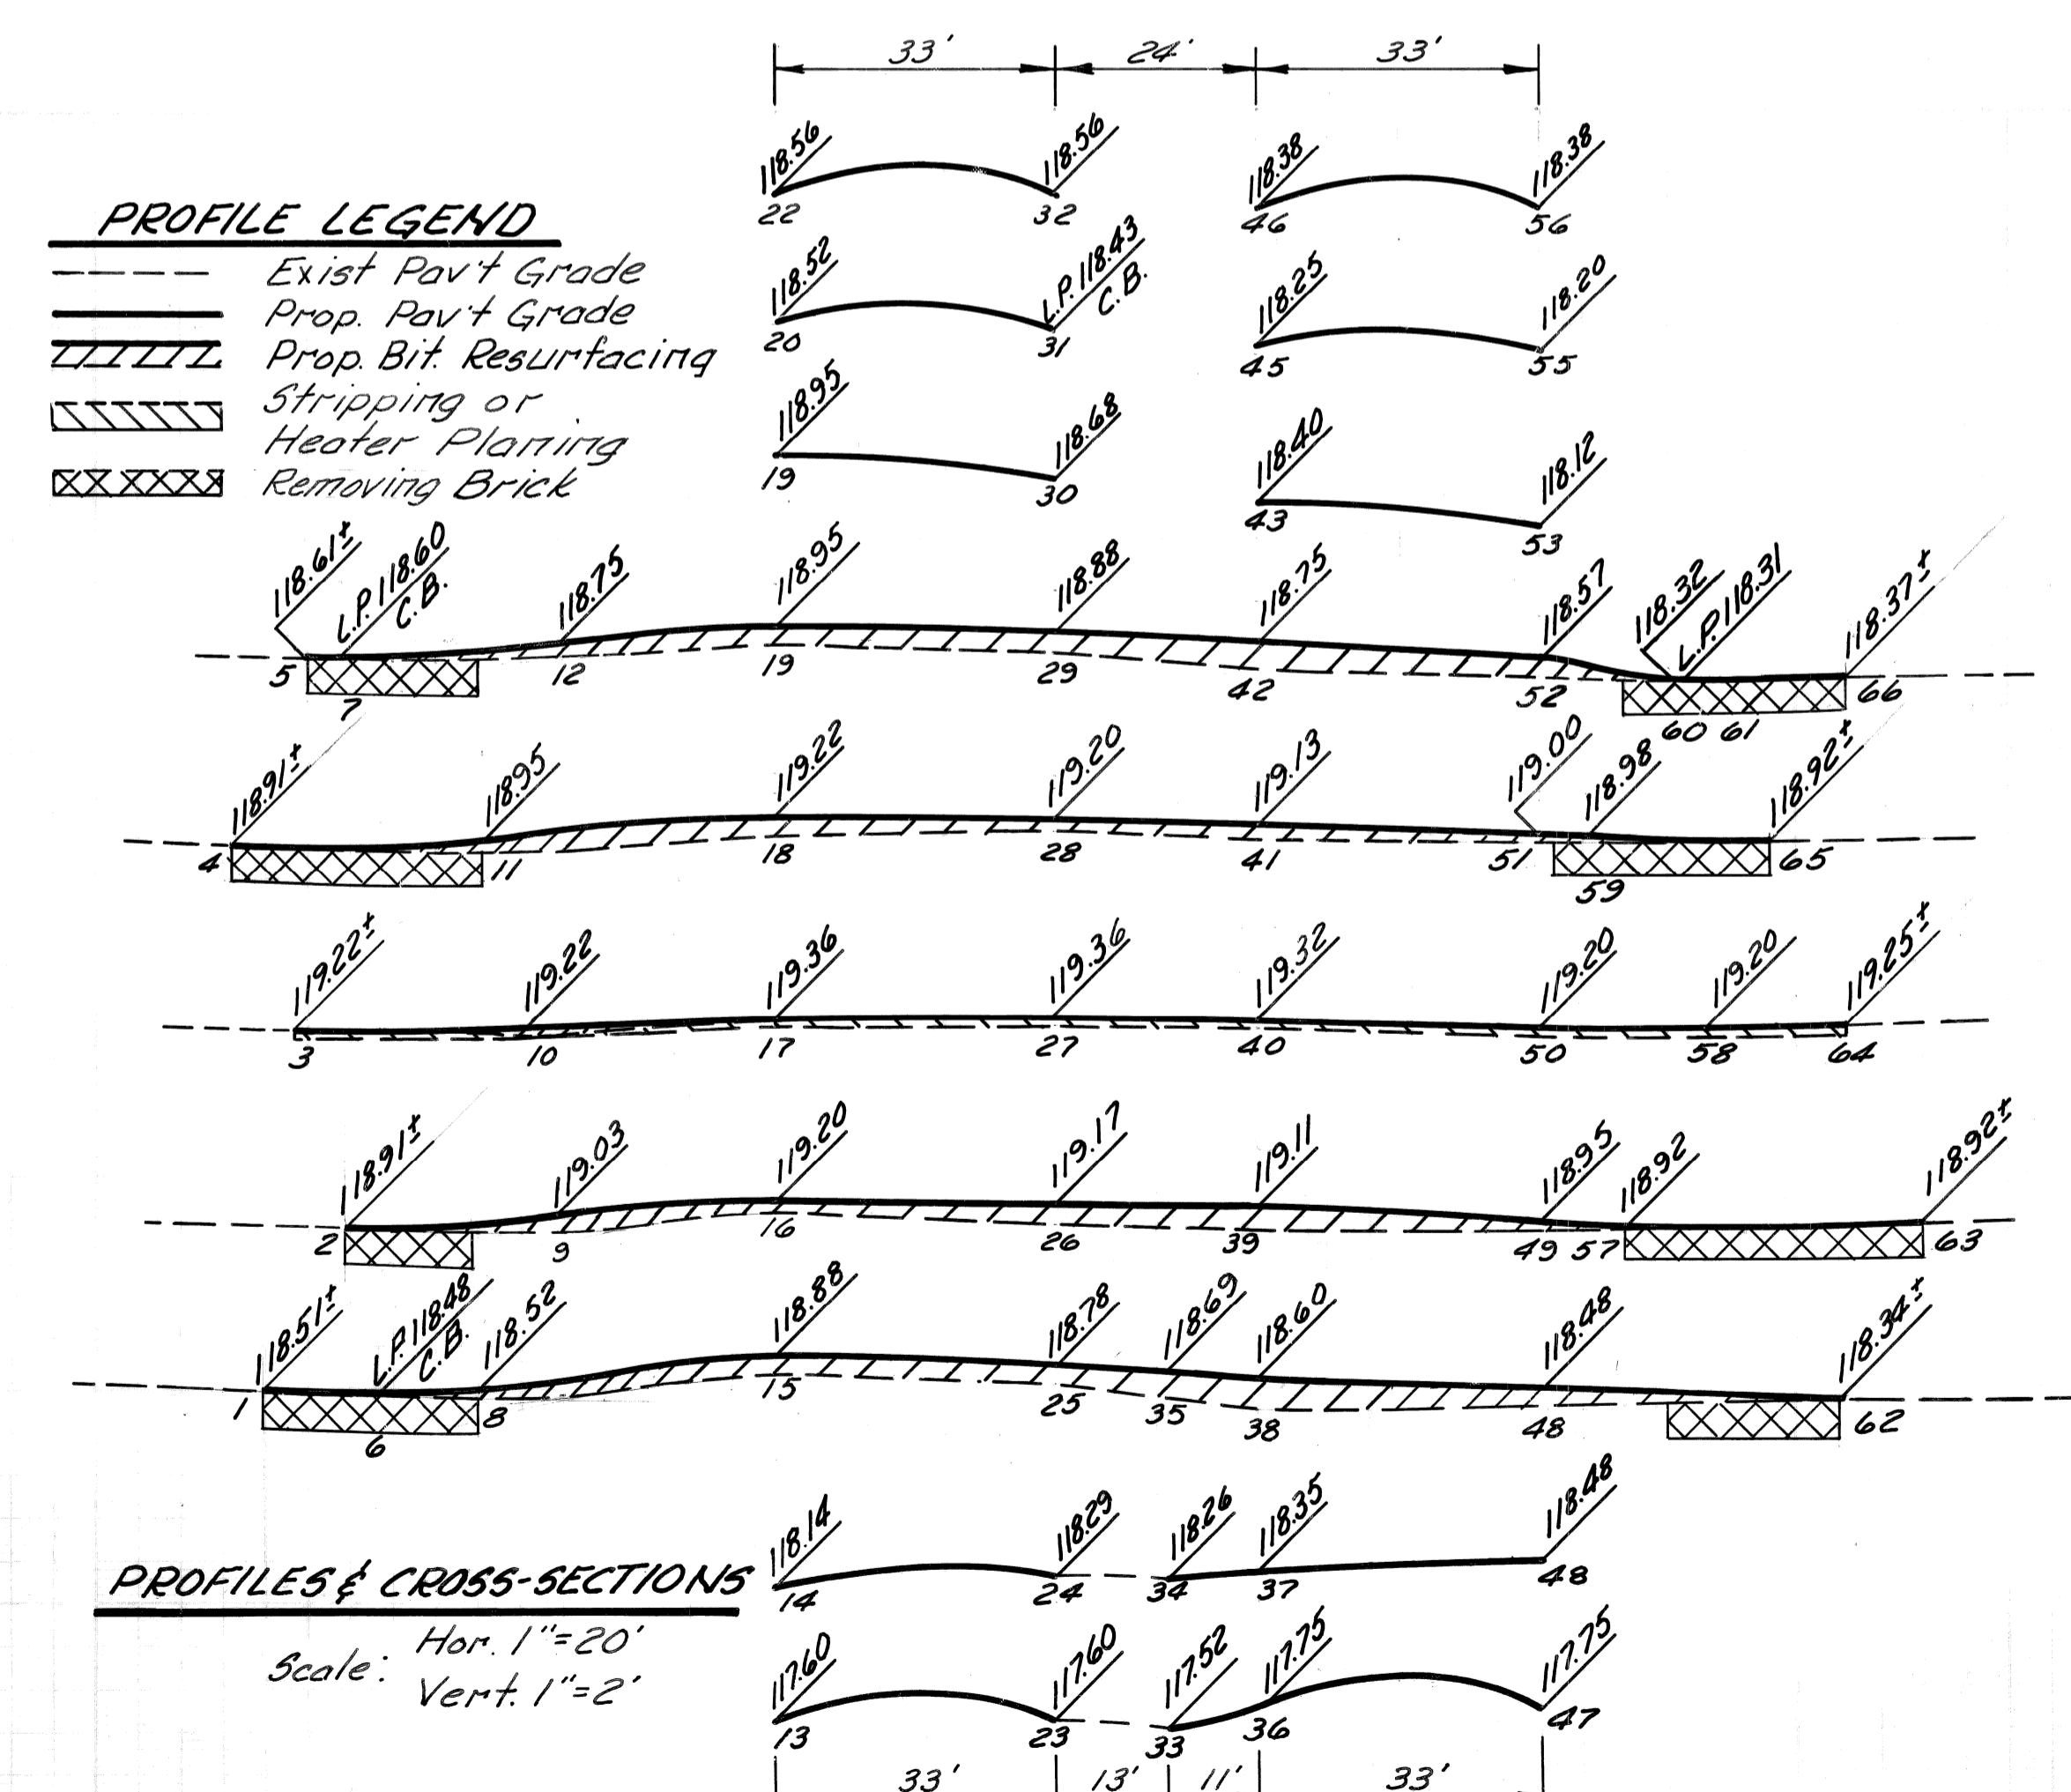 33' 24' 33'
118.56 118.56 118.38 118.38
22 32 46 56
PROFILE LEGEND
Exist Pav't Grade
Prop. Pav't Grade
Prop. Bit. Resurfacing
Stripping or
Heater Planing
Removing Brick
118.52 L.P. 118.43 C.B. 118.25 118.20
20 31 45 55
118.95 118.68 118.40 118.12
19 30 43 53
118.61± L.P. 118.60 C.B. 118.75 118.95 118.88 118.75 118.57 118.32 L.P. 118.31 118.37±
5 7 12 19 29 42 52 60 61 66
118.91± 118.95 119.22 119.20 119.13 119.00 118.98 118.92±
4 11 18 28 41 51 59 65
119.22± 119.22 119.36 119.36 119.32 119.20 119.20 119.25±
3 10 17 27 40 50 58 64
118.91± 119.03 119.20 119.17 119.11 118.95 118.92 118.92±
2 9 16 26 39 49 57 63
118.51± L.P. 118.48 C.B. 118.52 118.88 118.78 118.69 118.60 118.48 118.34±
1 6 8 15 25 35 38 48 62
118.14 118.29 118.26 118.35 118.48
14 24 34 37 48
PROFILES & CROSS-SECTIONS
Scale: Hor. 1"=20'
Vert. 1"=2'
117.60 117.60 117.52 117.75 117.75
13 23 33 36 47
33' 13' 11' 33'